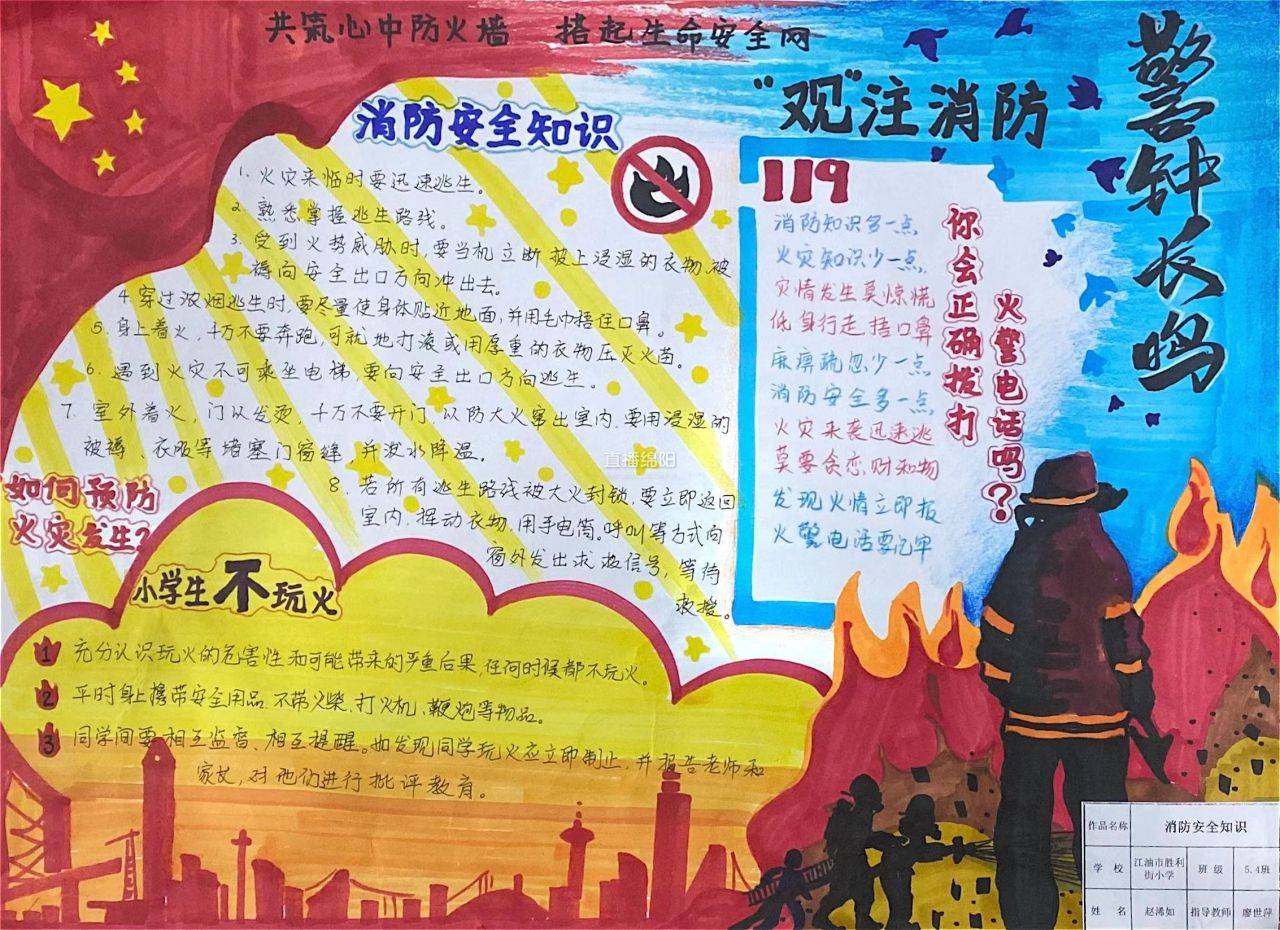 共筑心中防火墙 搭起生命安全网
"观"注消防
警钟长鸣
消防安全知识
1. 火灾来临时要迅速逃生。
2. 熟悉掌握逃生路线。
3. 受到火势威胁时,要当机立断披上浸湿的衣物、被
褥向安全出口方向冲出去。
4. 穿过浓烟逃生时,要尽量使身体贴近地面,并用毛巾捂住口鼻。
5. 身上着火,千万不要奔跑,可就地打滚或用厚重的衣物压灭火苗。
6. 遇到火灾不可乘坐电梯,要向安全出口方向逃生。
7. 室外着火,门以发烫,千万不要开门,以防大火窜出室内,要用浸湿的
被褥、衣服等堵塞门窗缝,并泼水降温。
8. 若所有逃生路线被大火封锁,要立即返回
室内,挥动衣物,用手电筒,呼叫等方式向
窗外发出求救信号,等待
救援。
119
消防知识多一点
火灾知识少一点
灾情发生莫惊慌
低身行走捂口鼻
麻痹疏忽少一点
消防安全多一点
火灾来袭迅速逃
莫要贪恋财和物
发现火情立即报
火警电话要记牢
你会正确拨打
火警电话吗?
直播绵阳
如何预防
火灾发生?
小学生不玩火
1 充分认识玩火的危害性和可能带来的严重后果,任何时候都不玩火。
2 平时身上携带安全用品,不带火柴、打火机、鞭炮等物品。
3 同学间要相互监督、相互提醒。如发现同学玩火应立即制止,并报告老师和
家长,对他们进行批评教育。
作品名称 消防安全知识
学 校 江油市胜利街小学 班 级 5.4班
姓 名 赵浠如 指导教师 廖世萍